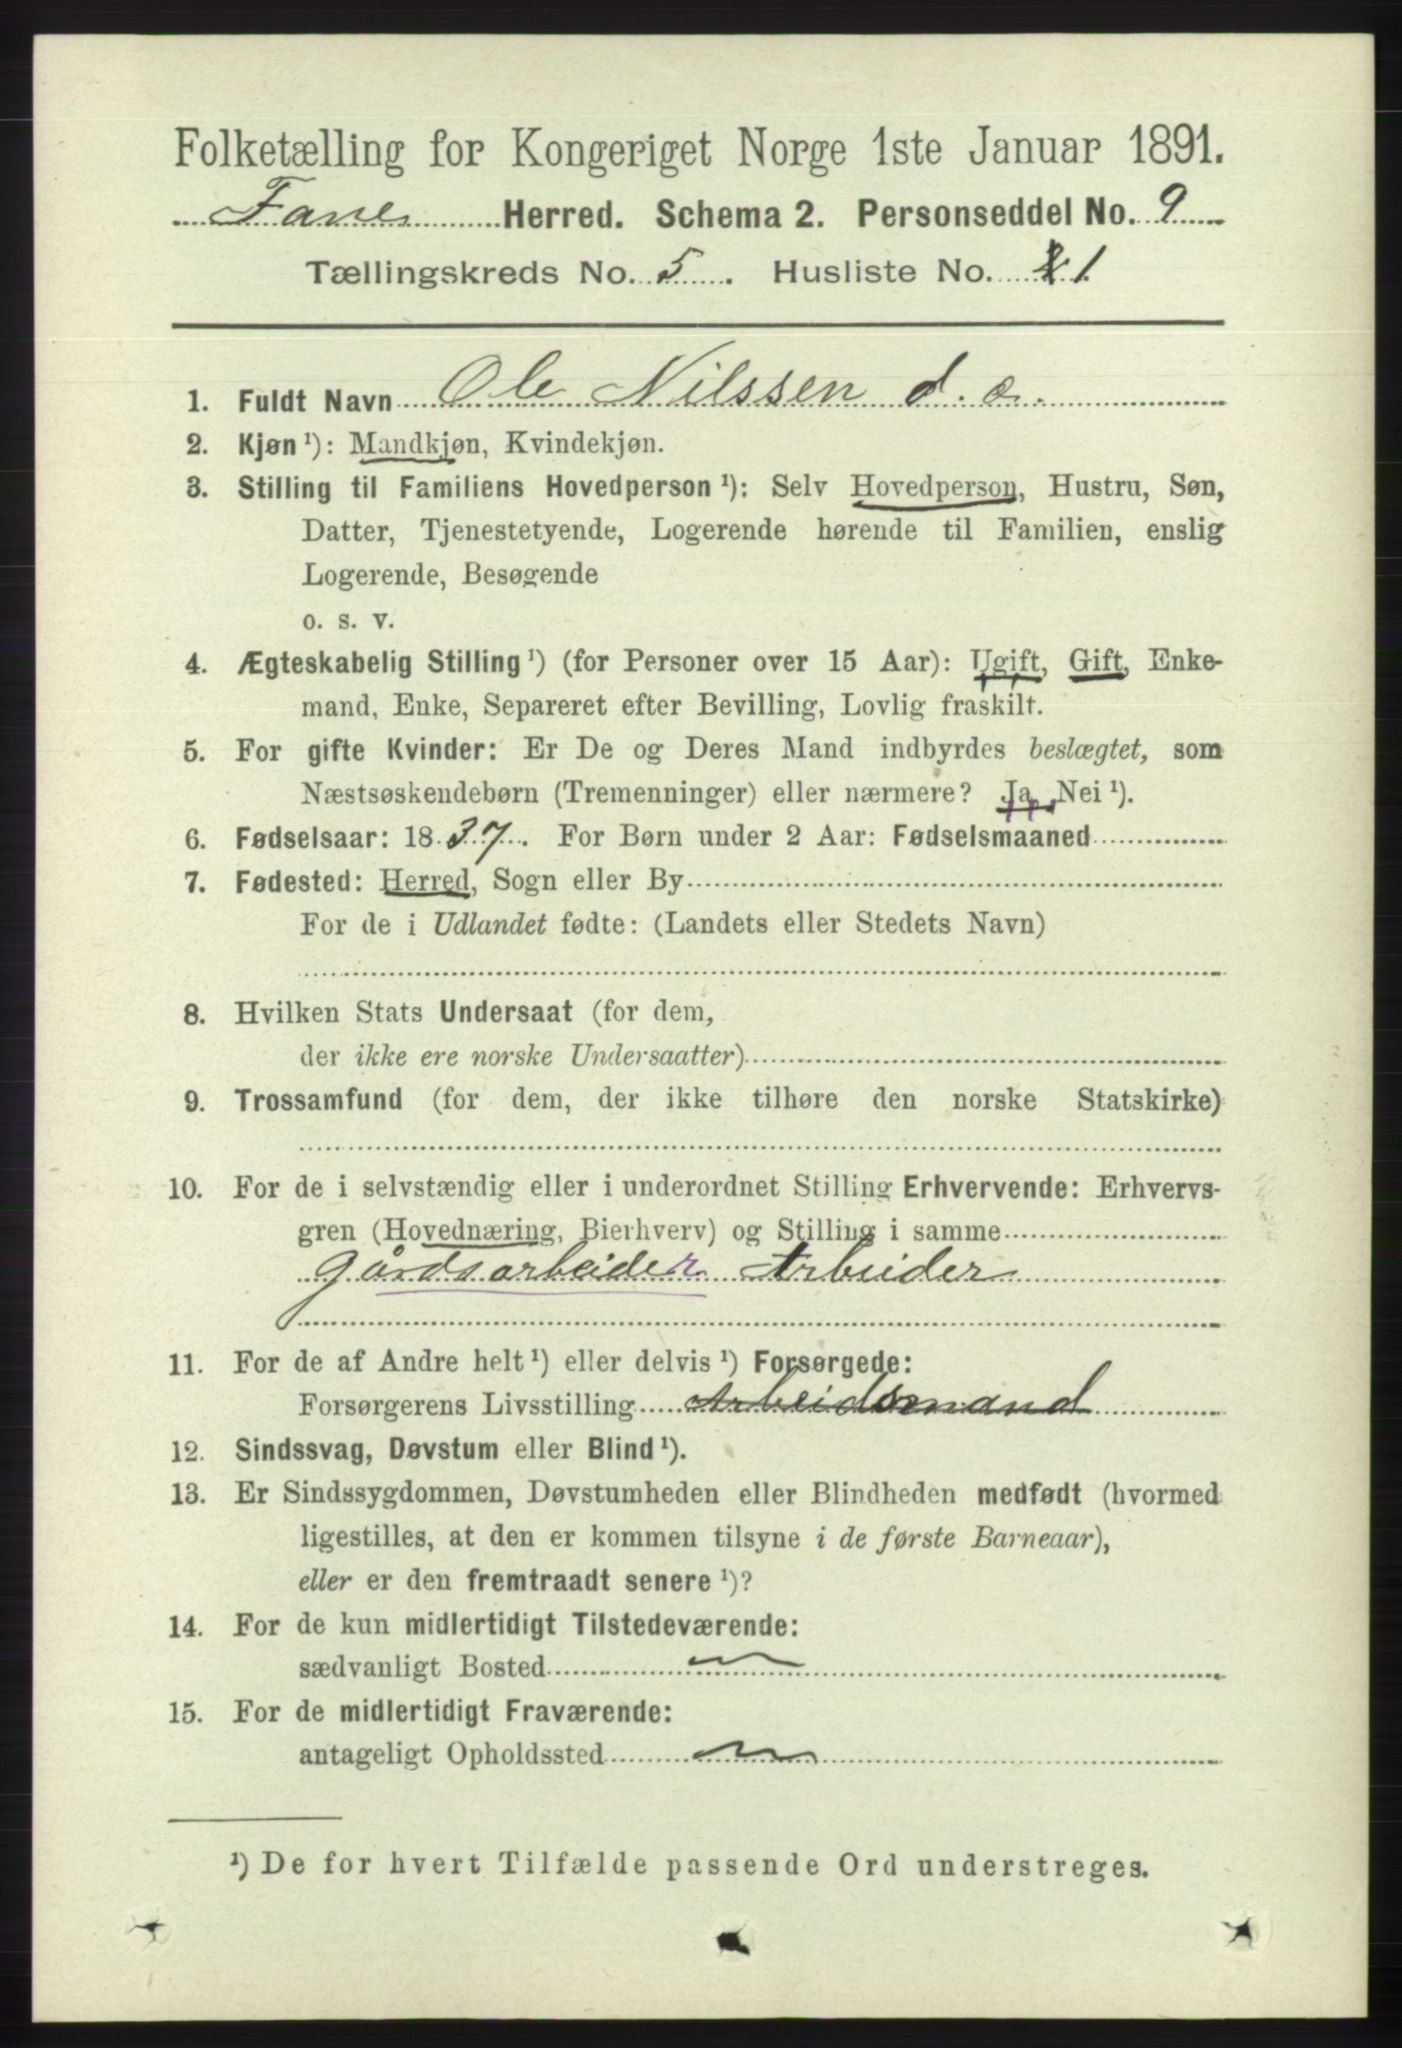 Folketælling for Kongeriget Norge 1ste Januar 1891.
Fane Herred. Schema 2. Personseddel No. 9
Tællingskreds No. 5. Husliste No. 1
1. Fuldt Navn Ole Nilssen d. æ.
2. Kjøn ¹): Mandkjøn, Kvindekjøn.
3. Stilling til Familiens Hovedperson ¹): Selv Hovedperson, Hustru, Søn,
Datter, Tjenestetyende, Logerende hørende til Familien, enslig
Logerende, Besøgende
o. s. v.
4. Ægteskabelig Stilling ¹) (for Personer over 15 Aar): Ugift, Gift, Enke-
mand, Enke, Separeret efter Bevilling, Lovlig fraskilt.
5. For gifte Kvinder: Er De og Deres Mand indbyrdes beslægtet, som
Næstsøskendebørn (Tremenninger) eller nærmere? Ja, Nei ¹).
6. Fødselsaar: 1837. For Børn under 2 Aar: Fødselsmaaned
7. Fødested: Herred, Sogn eller By
For de i Udlandet fødte: (Landets eller Stedets Navn)
8. Hvilken Stats Undersaat (for dem,
der ikke ere norske Undersaatter)
9. Trossamfund (for dem, der ikke tilhøre den norske Statskirke)
10. For de i selvstændig eller i underordnet Stilling Erhvervende: Erhvervs-
gren (Hovednæring, Bierhverv) og Stilling i samme
Gårdsarbeider Arbeider
11. For de af Andre helt ¹) eller delvis ¹) Forsørgede:
Forsørgerens Livsstilling Arbeidsmand
12. Sindssvag, Døvstum eller Blind ¹).
13. Er Sindssygdommen, Døvstumheden eller Blindheden medfødt (hvormed
ligestilles, at den er kommen tilsyne i de første Barneaar),
eller er den fremtraadt senere ¹)?
14. For de kun midlertidigt Tilstedeværende:
sædvanligt Bosted
15. For de midlertidigt Fraværende:
antageligt Opholdssted
¹) De for hvert Tilfælde passende Ord understreges.